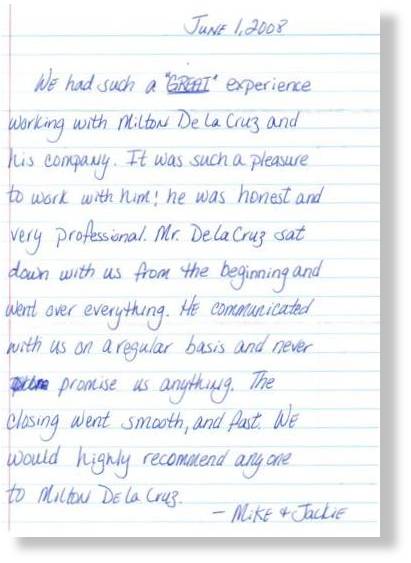 June 1, 2008
We had such a "GREAT" experience
working with Milton De La Cruz and
his company. It was such a pleasure
to work with him! he was honest and
very professional. Mr. De La Cruz sat
down with us from the beginning and
went over everything. He communicated
with us on a regular basis and never
promise us anything. The
closing went smooth, and fast. We
would highly recommend anyone
to Milton De La Cruz.
- Mike & Jackie